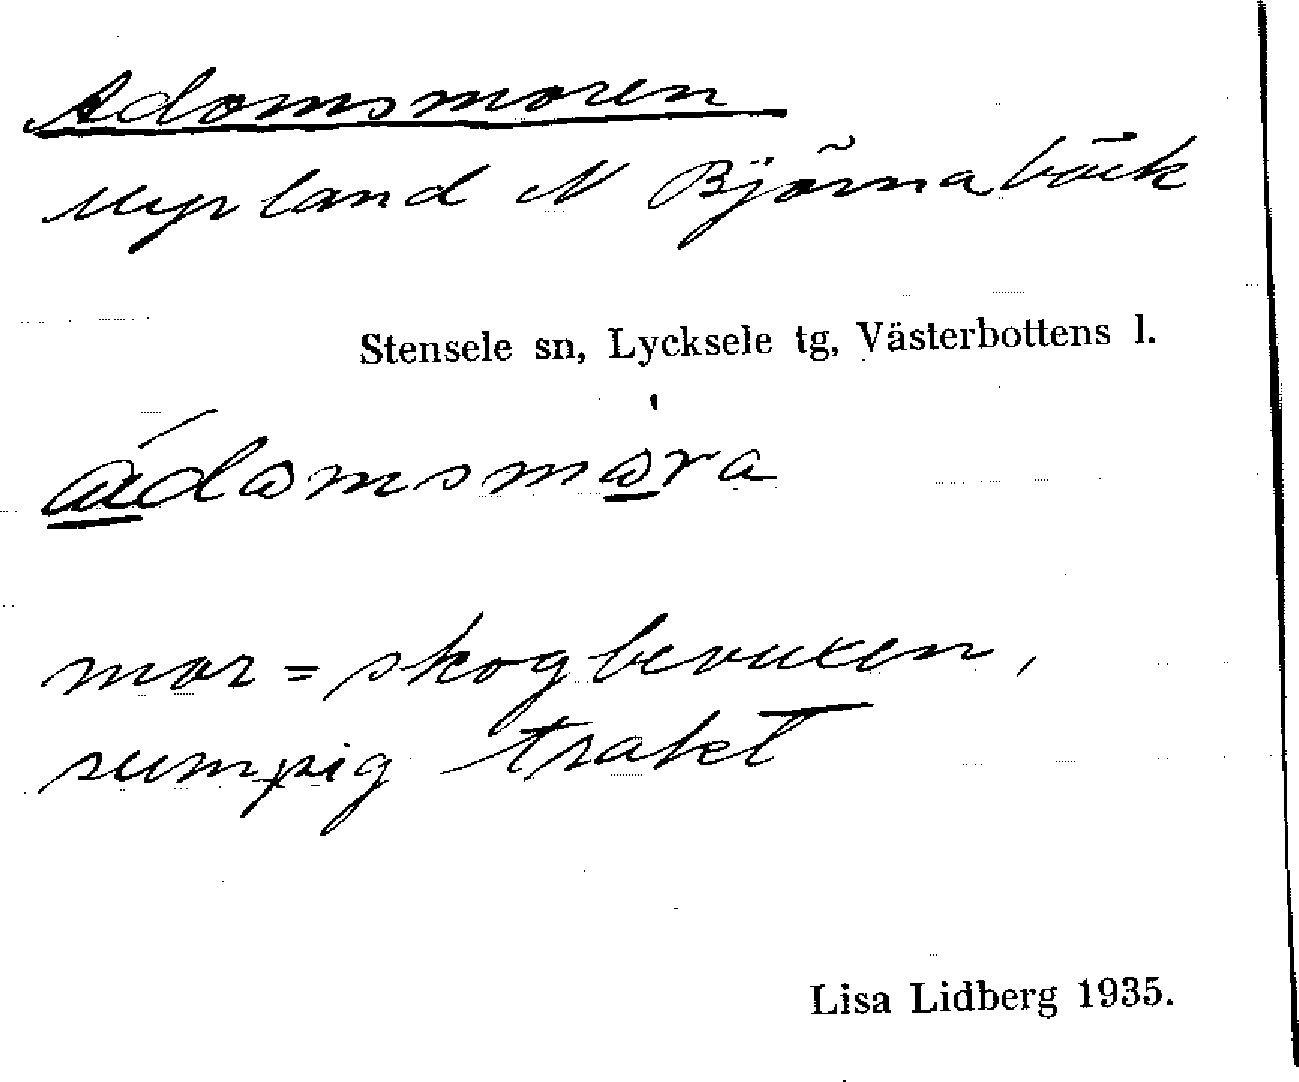 Adomsmoren
Myrland N Björnabäck
Stensele sn, Lycksele tg, Västerbottens l.
ádomsmòra
mor = skogbevuxen,
sumpig trakt
Lisa Lidberg 1935.